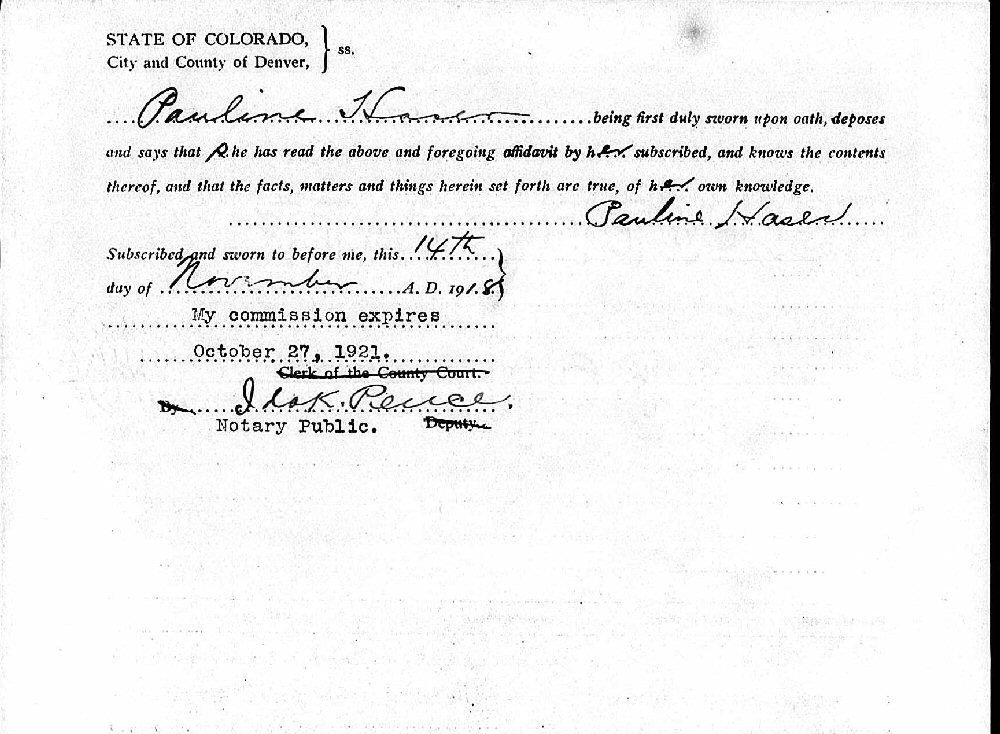 STATE OF COLORADO,
City and County of Denver, } ss.
Pauline Haser being first duly sworn upon oath, deposes
and says that she has read the above and foregoing affidavit by her subscribed, and knows the contents
thereof, and that the facts, matters and things herein set forth are true, of her own knowledge.
Pauline Haser
Subscribed and sworn to before me, this 14th
day of November A. D. 1918
My commission expires
October 27, 1921.
Clerk of the County Court.
By Ida K. Pence.
Notary Public. Deputy